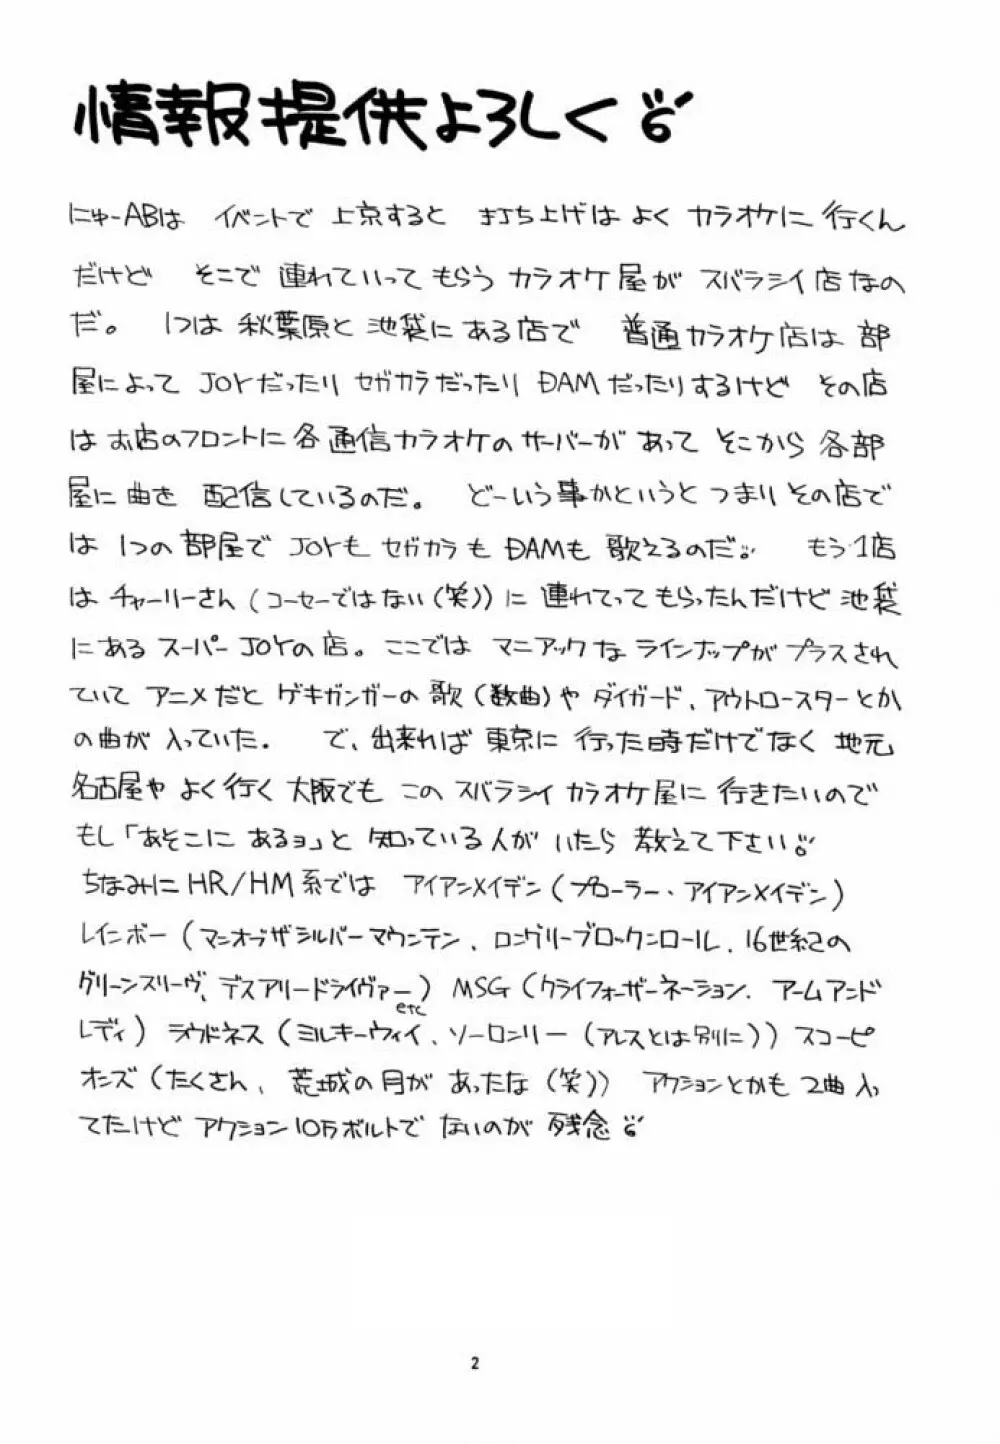 情報提供よろしく
にゅーABは イベントで 上京すると 打ち上げは よく カラオケに 行くん
だけど そこで 連れていって もらう カラオケ屋が スバラシイ店なの
だ。 1つは 秋葉原と 池袋に ある店で 普通カラオケ店は 部
屋によって JOYだったり セガカラだったり DAMだったりするけど その店
は お店のフロントに 各通信カラオケの サーバーが あって そこから 各部
屋に 曲を 配信しているのだ。 どーいう事かというと つまり その店で
は 1つの 部屋で JOYも セガカラも DAMも 歌えるのだ。 もう1店
は チャーリーさん (コーセーではない(笑)) に 連れてって もらったんだけど 池袋
にある スーパーJOYの店。 ここでは マニアックな ラインナップが プラスされ
ていて アニメだと ゲキガンガーの 歌 (数曲) や ダイガード、アウトロースターとか
の曲が 入っていた. で、出来れば 東京に 行った時だけでなく 地元
名古屋や よく行く 大阪でも この スバラシイ カラオケ屋に 行きたいので
もし「あそこに あるョ」と 知っている人が いたら 教えて下さい
ちなみに HR/HM系では アイアンメイデン (プローラー、アイアンメイデン)
レインボー (マンオブザシルバーマウンテン、ロングリーブロックンロール、16世紀の
グリーンスリーヴ、デスアリードライヴァー etc) MSG (クライフォーザーネーション. アームアンド
レディ) ラウドネス (ミルキーウェイ、ソーロンリー (アレスとは別に)) スコーピ
オンズ (たくさん、荒城の月が あったな (笑)) アクションとかも 2曲 入っ
てたけど アクション10万ボルトで ないのが 残念
2